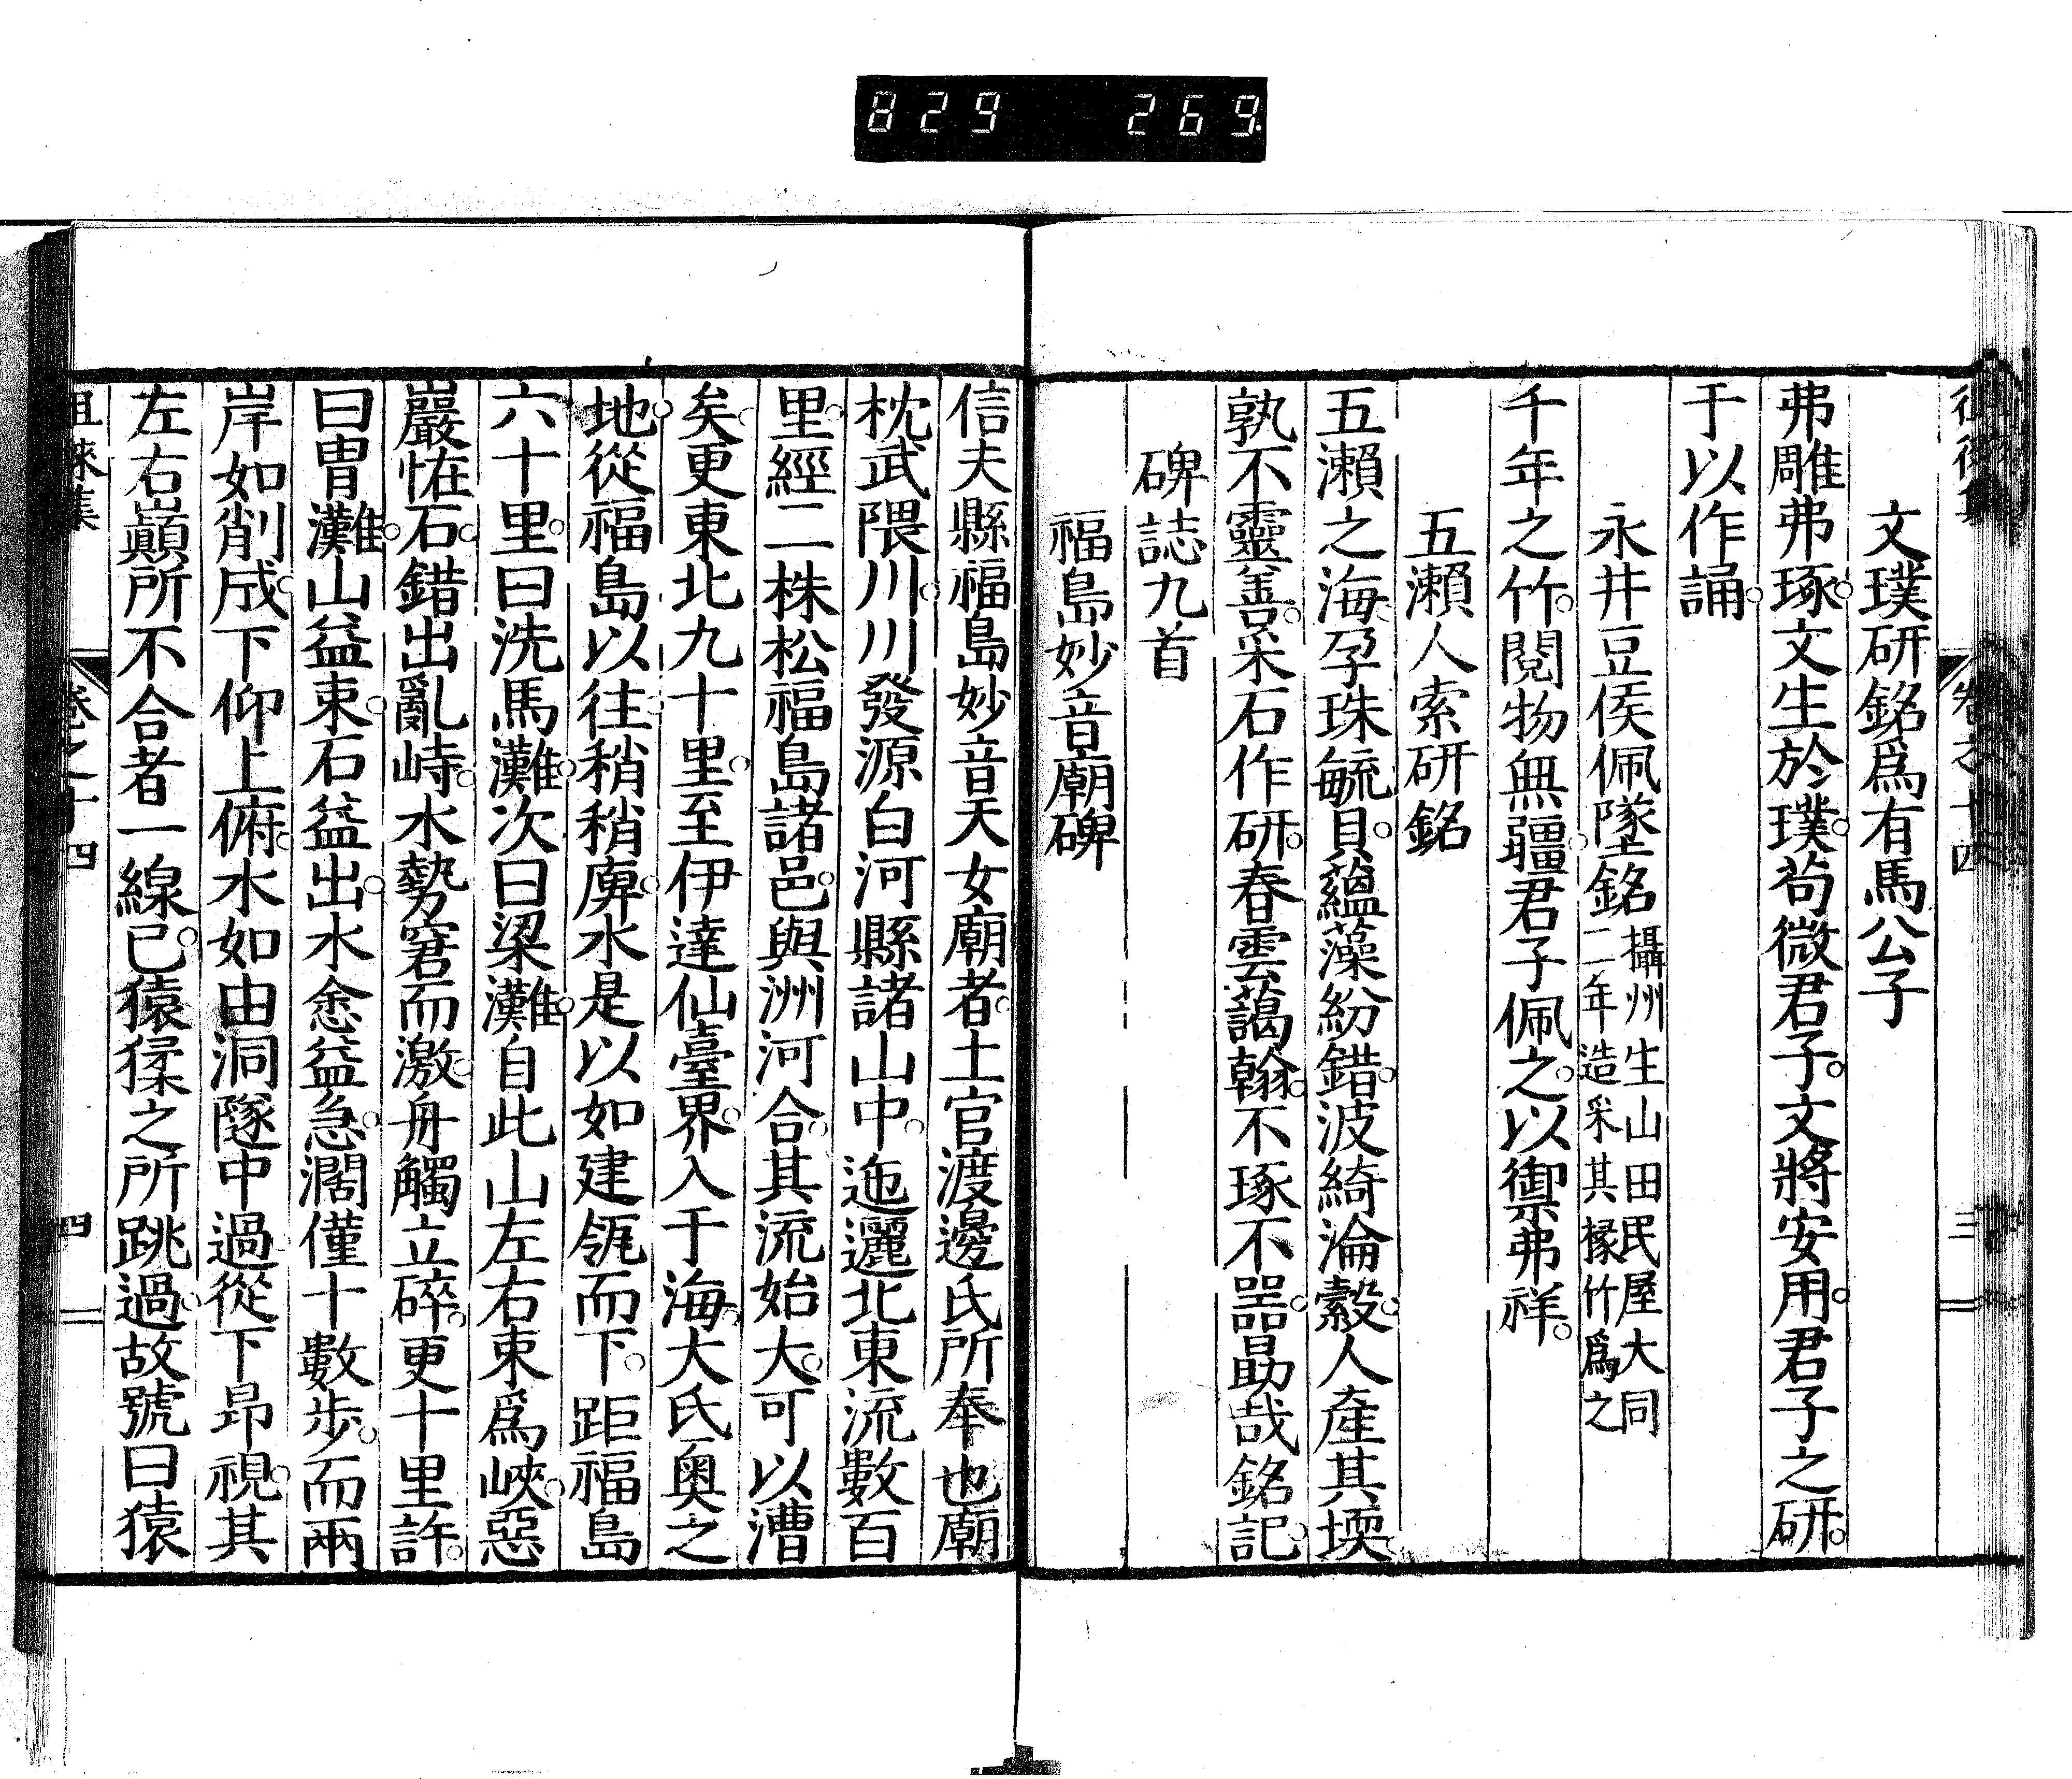 829 269.
文璞研銘爲有馬公子
弗雕弗琢。文生於璞。茍微君子。文將安用。君子之研。
于以作誦。
永井豆侯佩墜銘攝州生山田民屋大同
二年造采其椽竹爲之
千年之竹。閱物無疆。君子佩之。以禦弗祥。
五瀨人索研銘
五瀨之海。孕珠毓貝。蘊藻紛錯。波綺淪縠。人產其堧。
孰不靈善。采石作研。春雲藹翰。不琢不噐。勗哉銘記。
碑誌九首
福島妙音廟碑
信夫縣福島妙音天女廟者。土官渡邊氏所奉也廟
枕武隈川。川發源白河縣諸山中。迤邐北東流數百
里。經二株松福島諸邑。與洲河合。其流始大。可以漕
矣。更東北九十里。至伊達仙臺界。入于海。大氐奧之
地。從福島以往。稍稍庳。水是以如建瓴而下。距福島
六十里。曰洗馬灘。次曰梁灘。自此山左右束爲峽。惡
巖恠石。錯出亂峙。水勢窘而激。舟觸立碎。更十里許。
曰胄灘。山益束。石益出。水愈益急。濶僅十數步。而兩
岸如削成。下仰上俯。水如由洞隧中過。從下昂視。其
左右巓所不合者一線已。猿猱之所跳過。故號曰猿
徂徠集 卷之十四 四